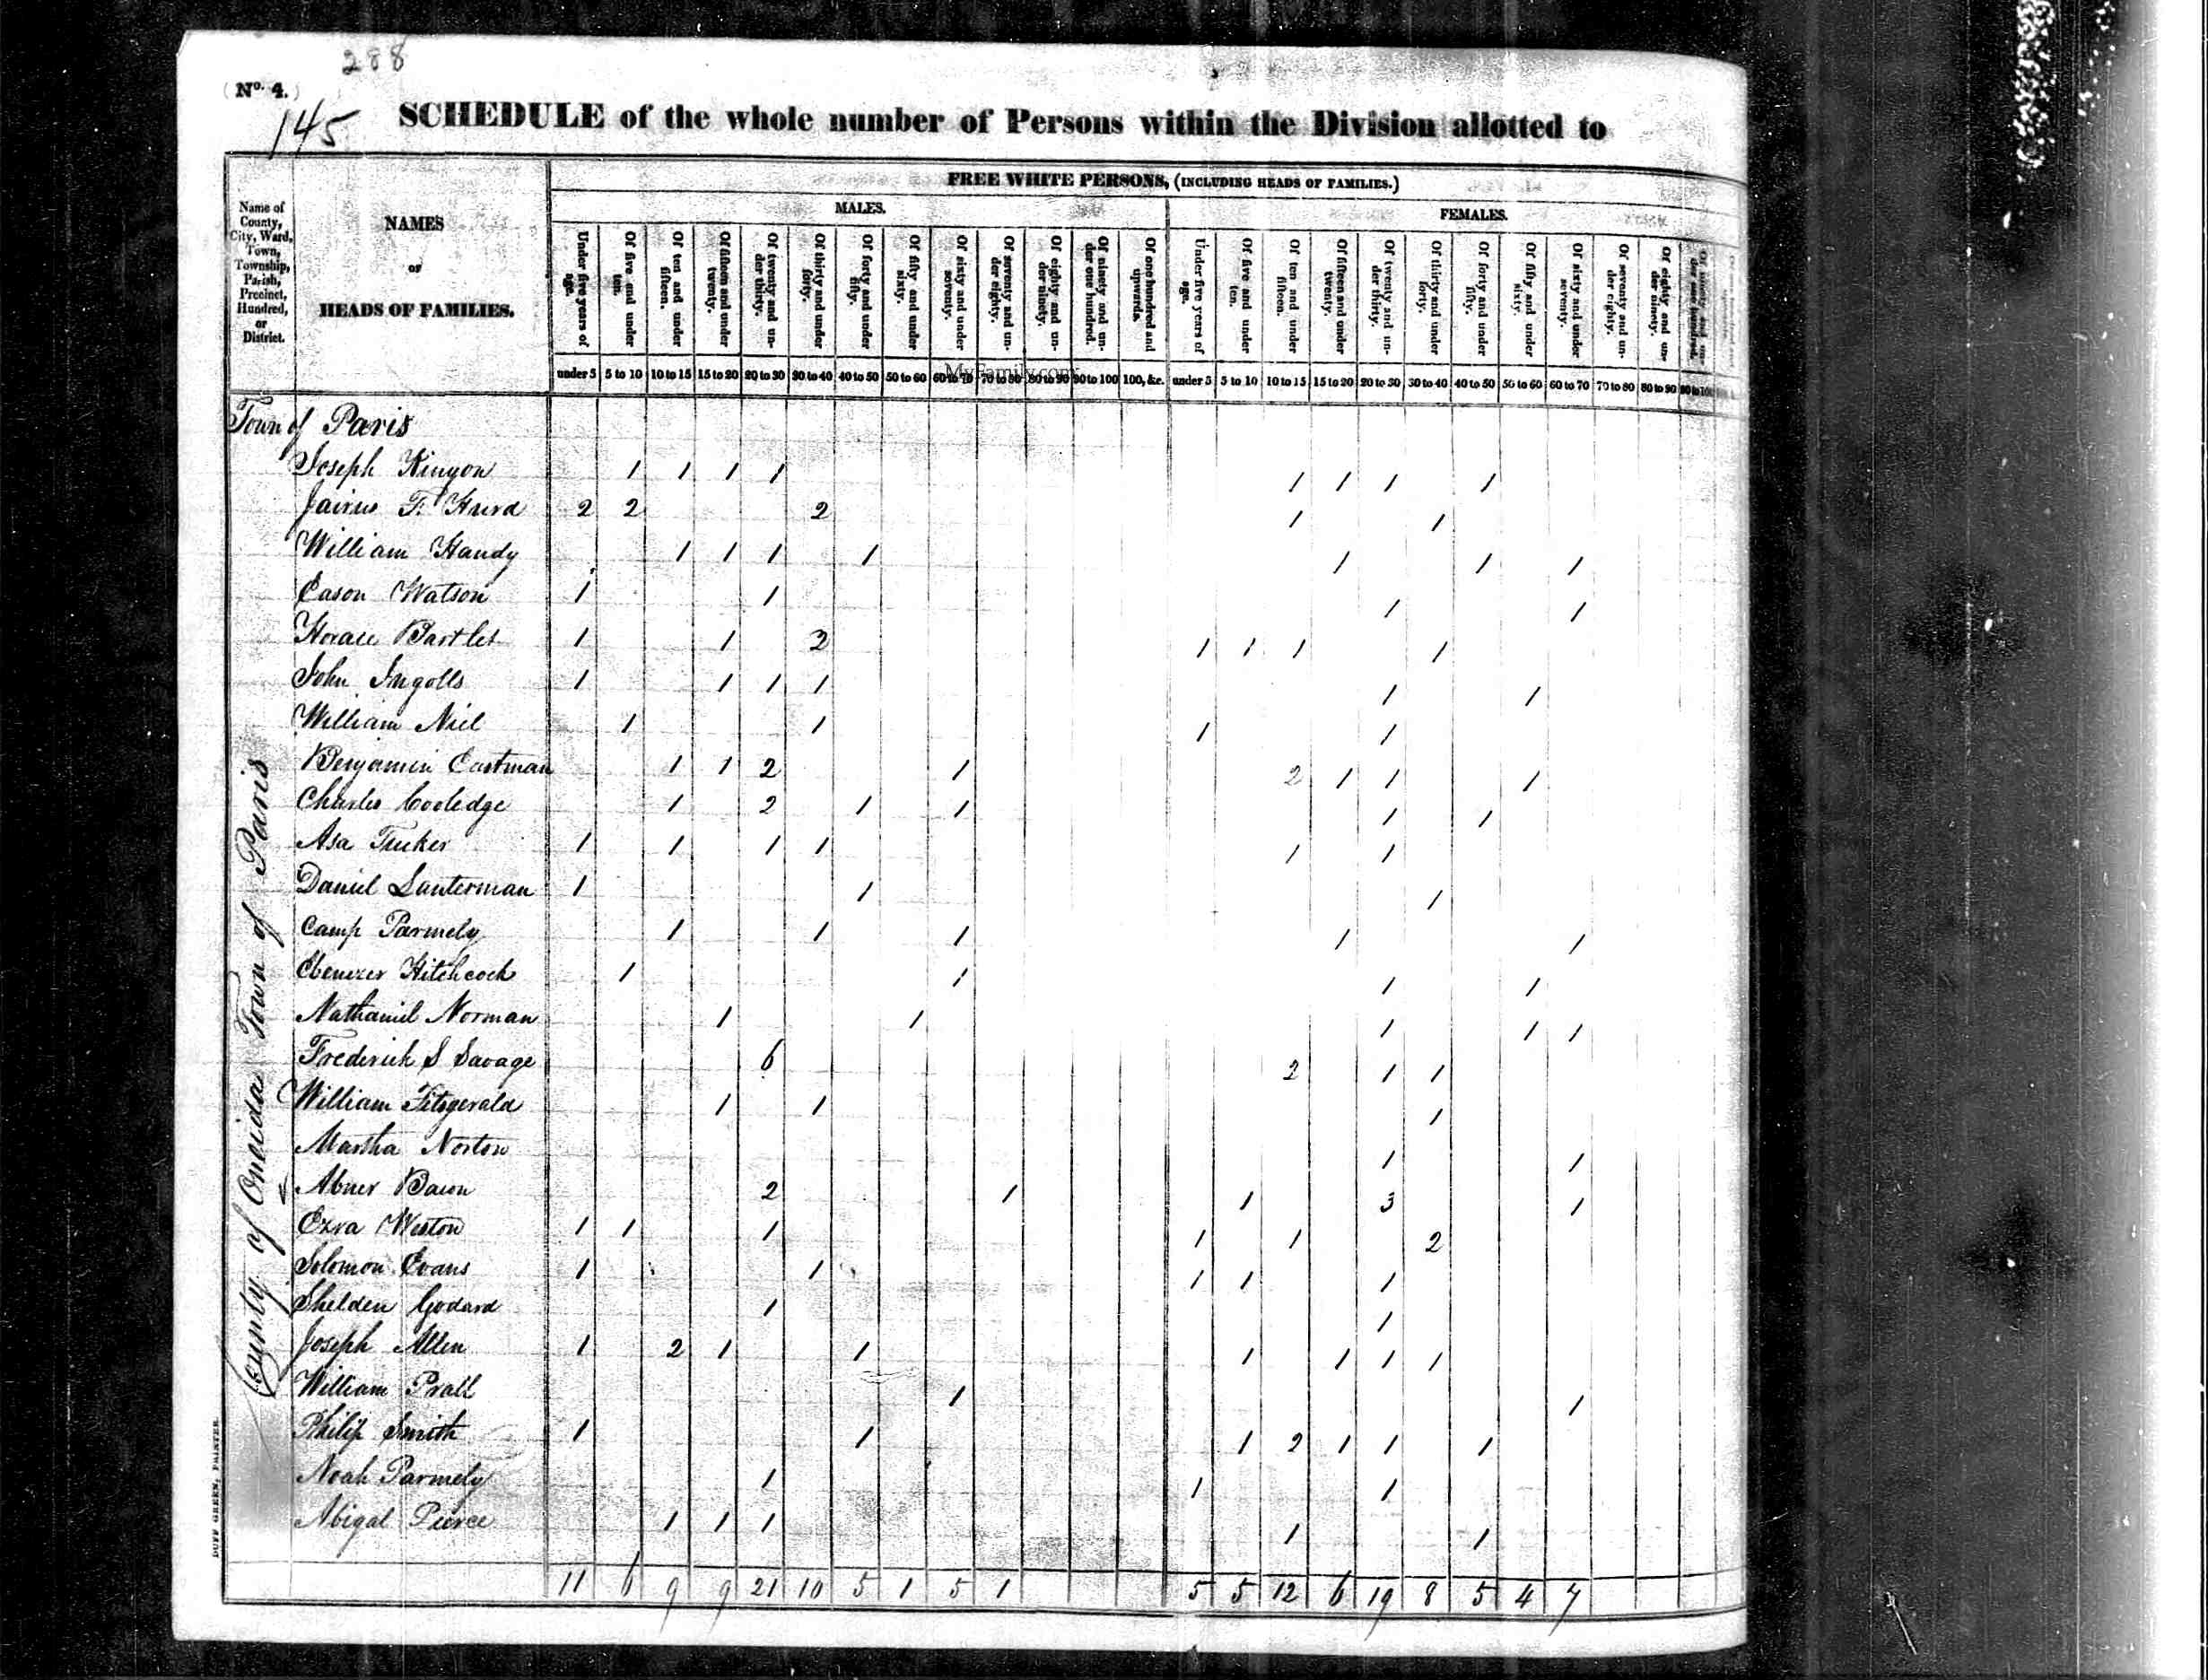 288
(No. 4.)
145
SCHEDULE of the whole number of Persons within the Division allotted to
FREE WHITE PERSONS, (INCLUDING HEADS OF FAMILIES.)
MALES. FEMALES.
Name of County, City, Ward, Town, Township, Parish, Precinct, Hundred, or District.
NAMES
OF
HEADS OF FAMILIES.
Under five years of age.
Of five and under ten.
Of ten and under fifteen.
Of fifteen and under twenty.
Of twenty and under thirty.
Of thirty and under forty.
Of forty and under fifty.
Of fifty and under sixty.
Of sixty and under seventy.
Of seventy and under eighty.
Of eighty and under ninety.
Of ninety and under one hundred.
Of one hundred and upwards.
Under five years of age.
Of five and under ten.
Of ten and under fifteen.
Of fifteen and under twenty.
Of twenty and under thirty.
Of thirty and under forty.
Of forty and under fifty.
Of fifty and under sixty.
Of sixty and under seventy.
Of seventy and under eighty.
Of eighty and under ninety.
Of ninety and under one hundred.
under 5 5 to 10 10 to 15 15 to 20 20 to 30 30 to 40 40 to 50 50 to 60 60 to 70 70 to 80 80 to 90 90 to 100 100, &c. under 5 5 to 10 10 to 15 15 to 20 20 to 30 30 to 40 40 to 50 50 to 60 60 to 70 70 to 80 80 to 90 90 to 100
MyFamily.com
Town of Paris
Joseph Kinyon 1 1 1 1 1 1 1 1
Jairus F. Hurd 2 2 2 1 1
William Handy 1 1 1 1 1 1 1
Eason Watson 1 1 1 1
Horace Bartlet 1 1 2 1 1 1 1
John Ingolls 1 1 1 1 1 1
William Niel 1 1 1 1
Benjamin Eastman 1 1 2 1 2 1 1 1
Charles Cooledge 1 2 1 1 1 1
Asa Tucker 1 1 1 1 1 1
Daniel Lanterman 1 1 1
Camp Parmely 1 1 1 1 1
Ebenezer Hitchcock 1 1 1 1
Nathaniel Norman 1 1 1 1 1
Frederick S Savage 6 2 1 1
William Fitzgerald 1 1 1
Martha Norton 1 1
Abner Bacon 2 1 1 3 1
Ezra Weston 1 1 1 1 1 2
Solomon Evans 1 1 1 1 1
Shelden Godard 1 1
Joseph Allen 1 2 1 1 1 1 1 1
William Prall 1 1
Philip Smith 1 1 1 2 1 1 1
Noah Parmely 1 1 1
Abigal Pierce 1 1 1 1 1
11 6 9 9 21 10 5 1 5 1 5 5 12 6 19 8 5 4 7
County of Oneida Town of Paris
DUFF GREEN, PRINTER.